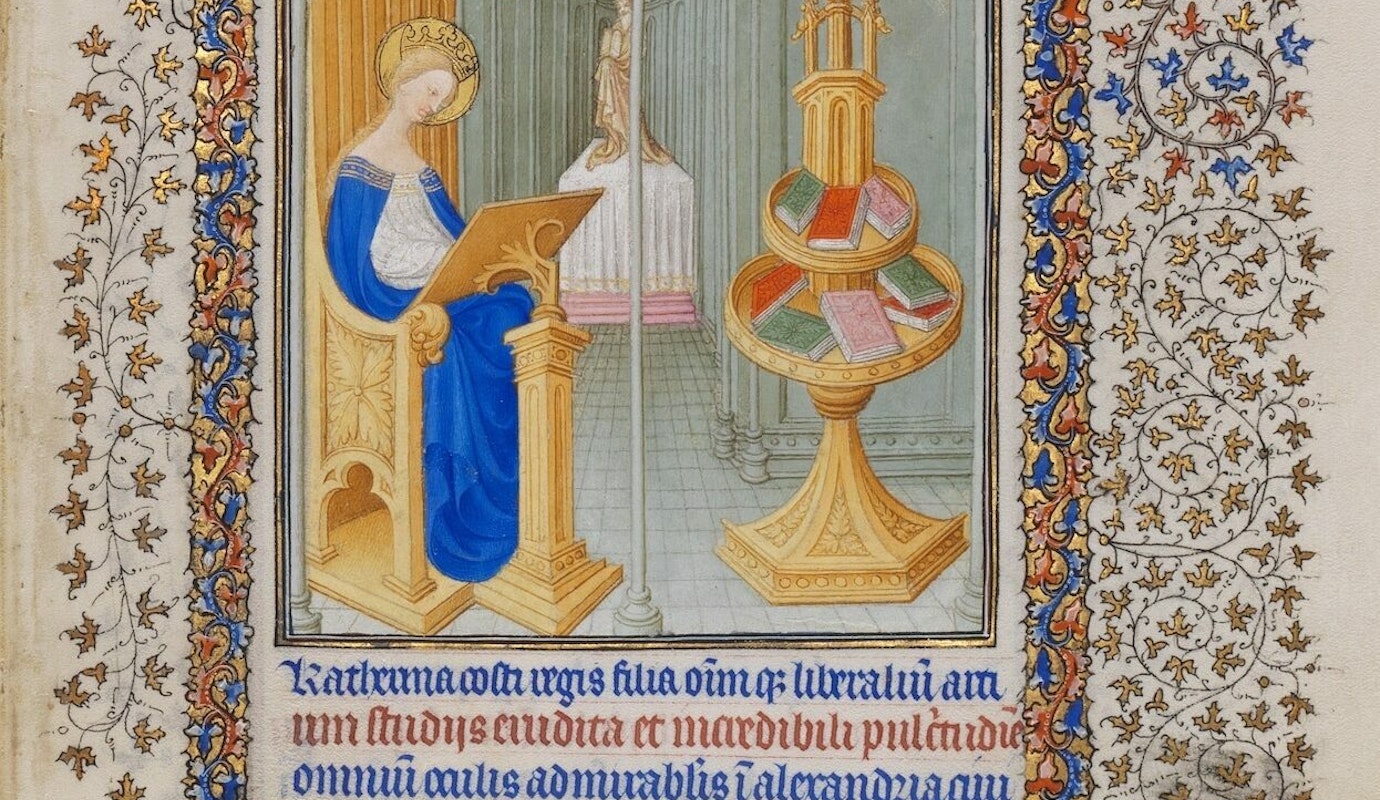 Katherina costi regis filia oīm qꝫ liberaliū arti
um studijs erudita et incredibili pulc̄tudīe
omniū oculis admirabl̄is ī alexandria ciui